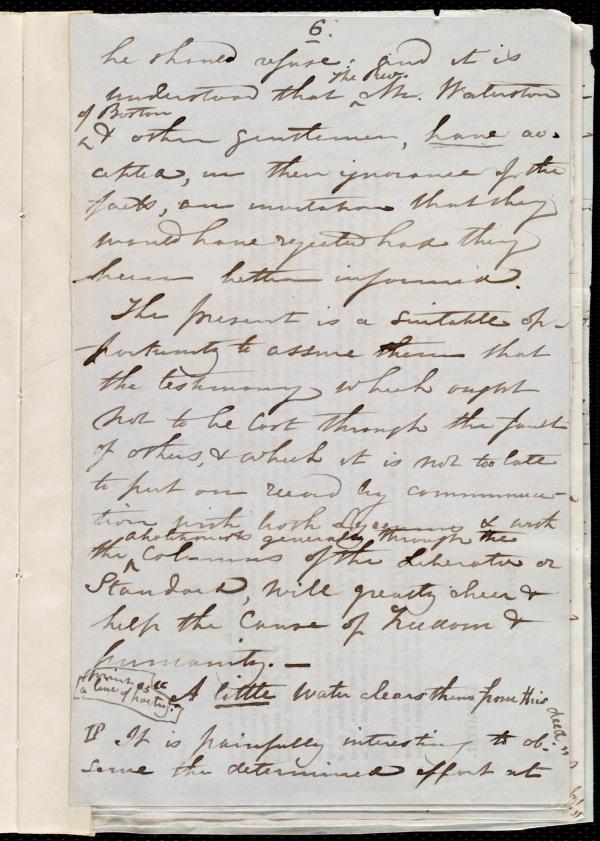 6.
he should refuse: and it is
the Rev.
understood that ^ Mr. Waterston
of Boston
^ & other gentlemen, have ac-
cepted, in their ignorance of the
facts, an invitation that they
would have rejected had they
been better informed.
The present is a suitable op-
portunity to assure them that
the testimony which ought
not to be lost through the fault
of others, & which it is not too late
to put on record by communica-
tion with both Lyceums & with
abolitionists generally through the
the ^ Columns of the Liberator or
Standard, will greatly cheer &
help the Cause of Freedom &
humanity. —
[print as
a line of poetry.]
"A little water clears them from this
deed."
¶ It is painfully interesting to ob-
serve the determined effort at